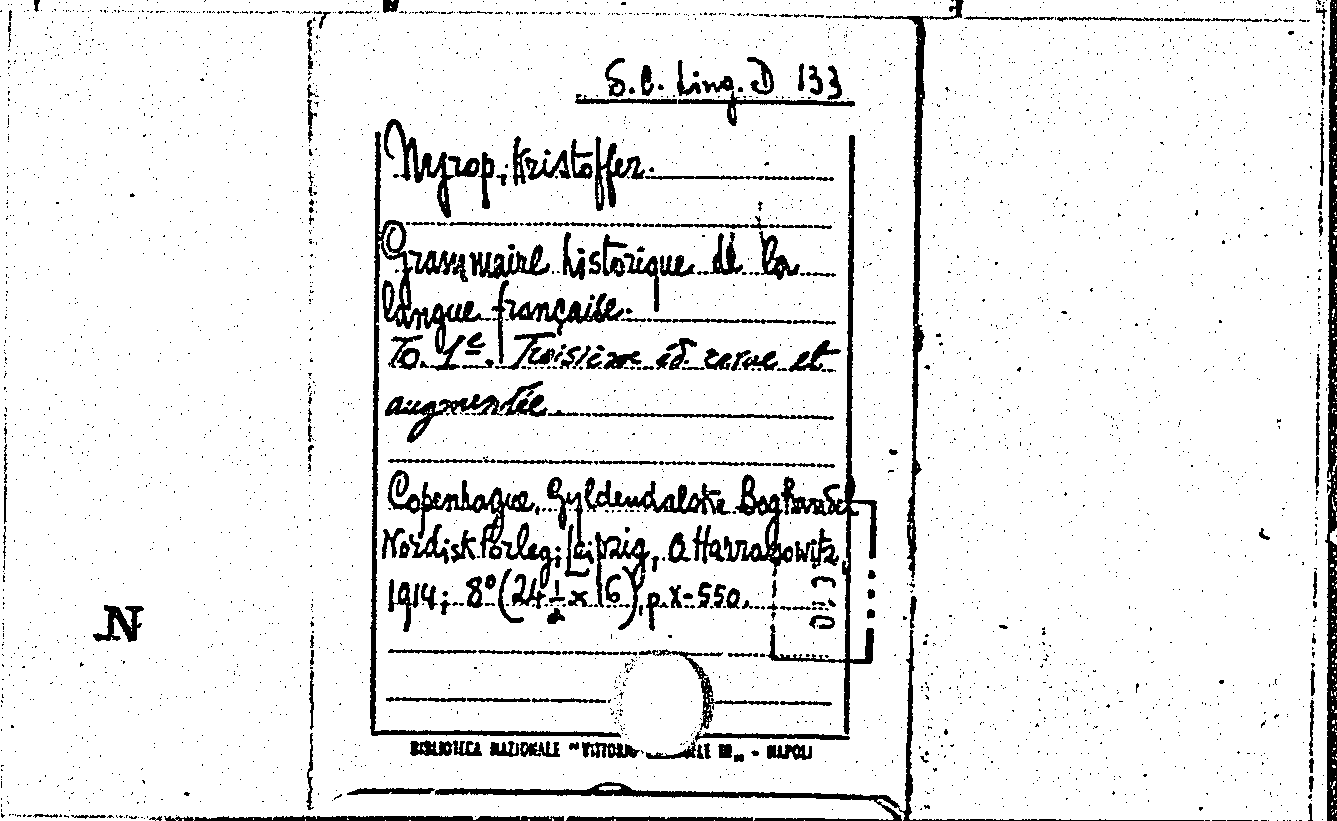 S.C. Ling. D 133
Nyrop, Kristoffer.
Grammaire historique de la
langue française.
To. 1e. Troisième éd. revue et
augmentée.
Copenhague, Gyldendalske Boghandel
Nordisk Forlag; Leipzig, O Harrassowitz,
1914; 8° (24 1/2 x 16), p. X-550.
N
BIBLIOTECA NAZIONALE "VITTORIO III„ - NAPOLI